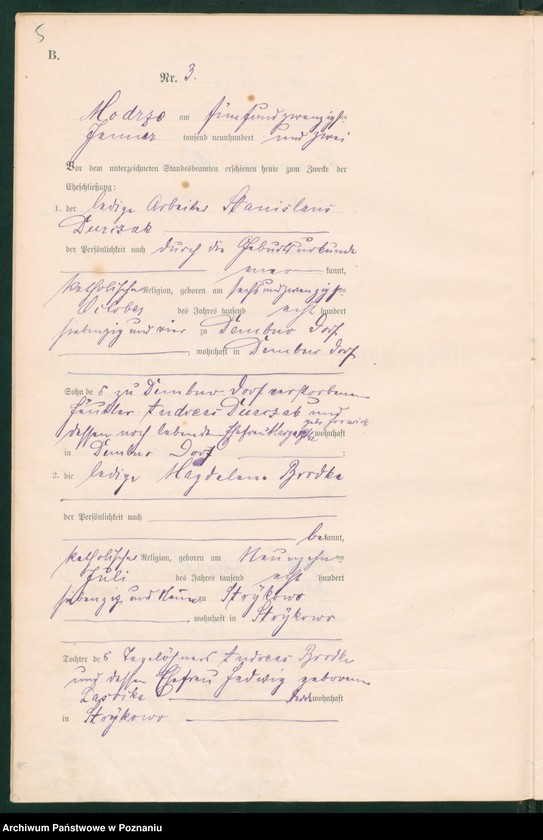 5
B.
Nr. 3.
Modrze am fünfundzwanzigsten
Januar tausend neunhundert und zwei
Vor dem unterzeichneten Standesbeamten erschienen heute zum Zwecke der
Eheschließung:
1. der ledige Arbeiter Stanislaus
der Persönlichkeit nach durch die Geburtsurkunde
kannt,
katholischer Religion, geboren am sechsundzwanzigsten
October des Jahres tausend acht hundert
siebenzig und vier zu Dembno Dorf
, wohnhaft in Dembno Dorf
Sohn des zu Dembno Dorf verstorbenen
Häusler Andreas und
dessen noch lebende Ehefrau wohnhaft
in Dembno Dorf :
2. die ledige Magdalena Brodka
der Persönlichkeit nach
bekannt,
katholischer Religion, geboren am Neunzehnten
Juli des Jahres tausend acht hundert
siebenzig und Neun zu Strykowo
, wohnhaft in Strykowo
Tochter des Tagelöhners Andreas Brodka
und dessen Ehefrau Hedwig geborenen
wohnhaft
in Strykowo
Archiwum Państwowe w Poznaniu